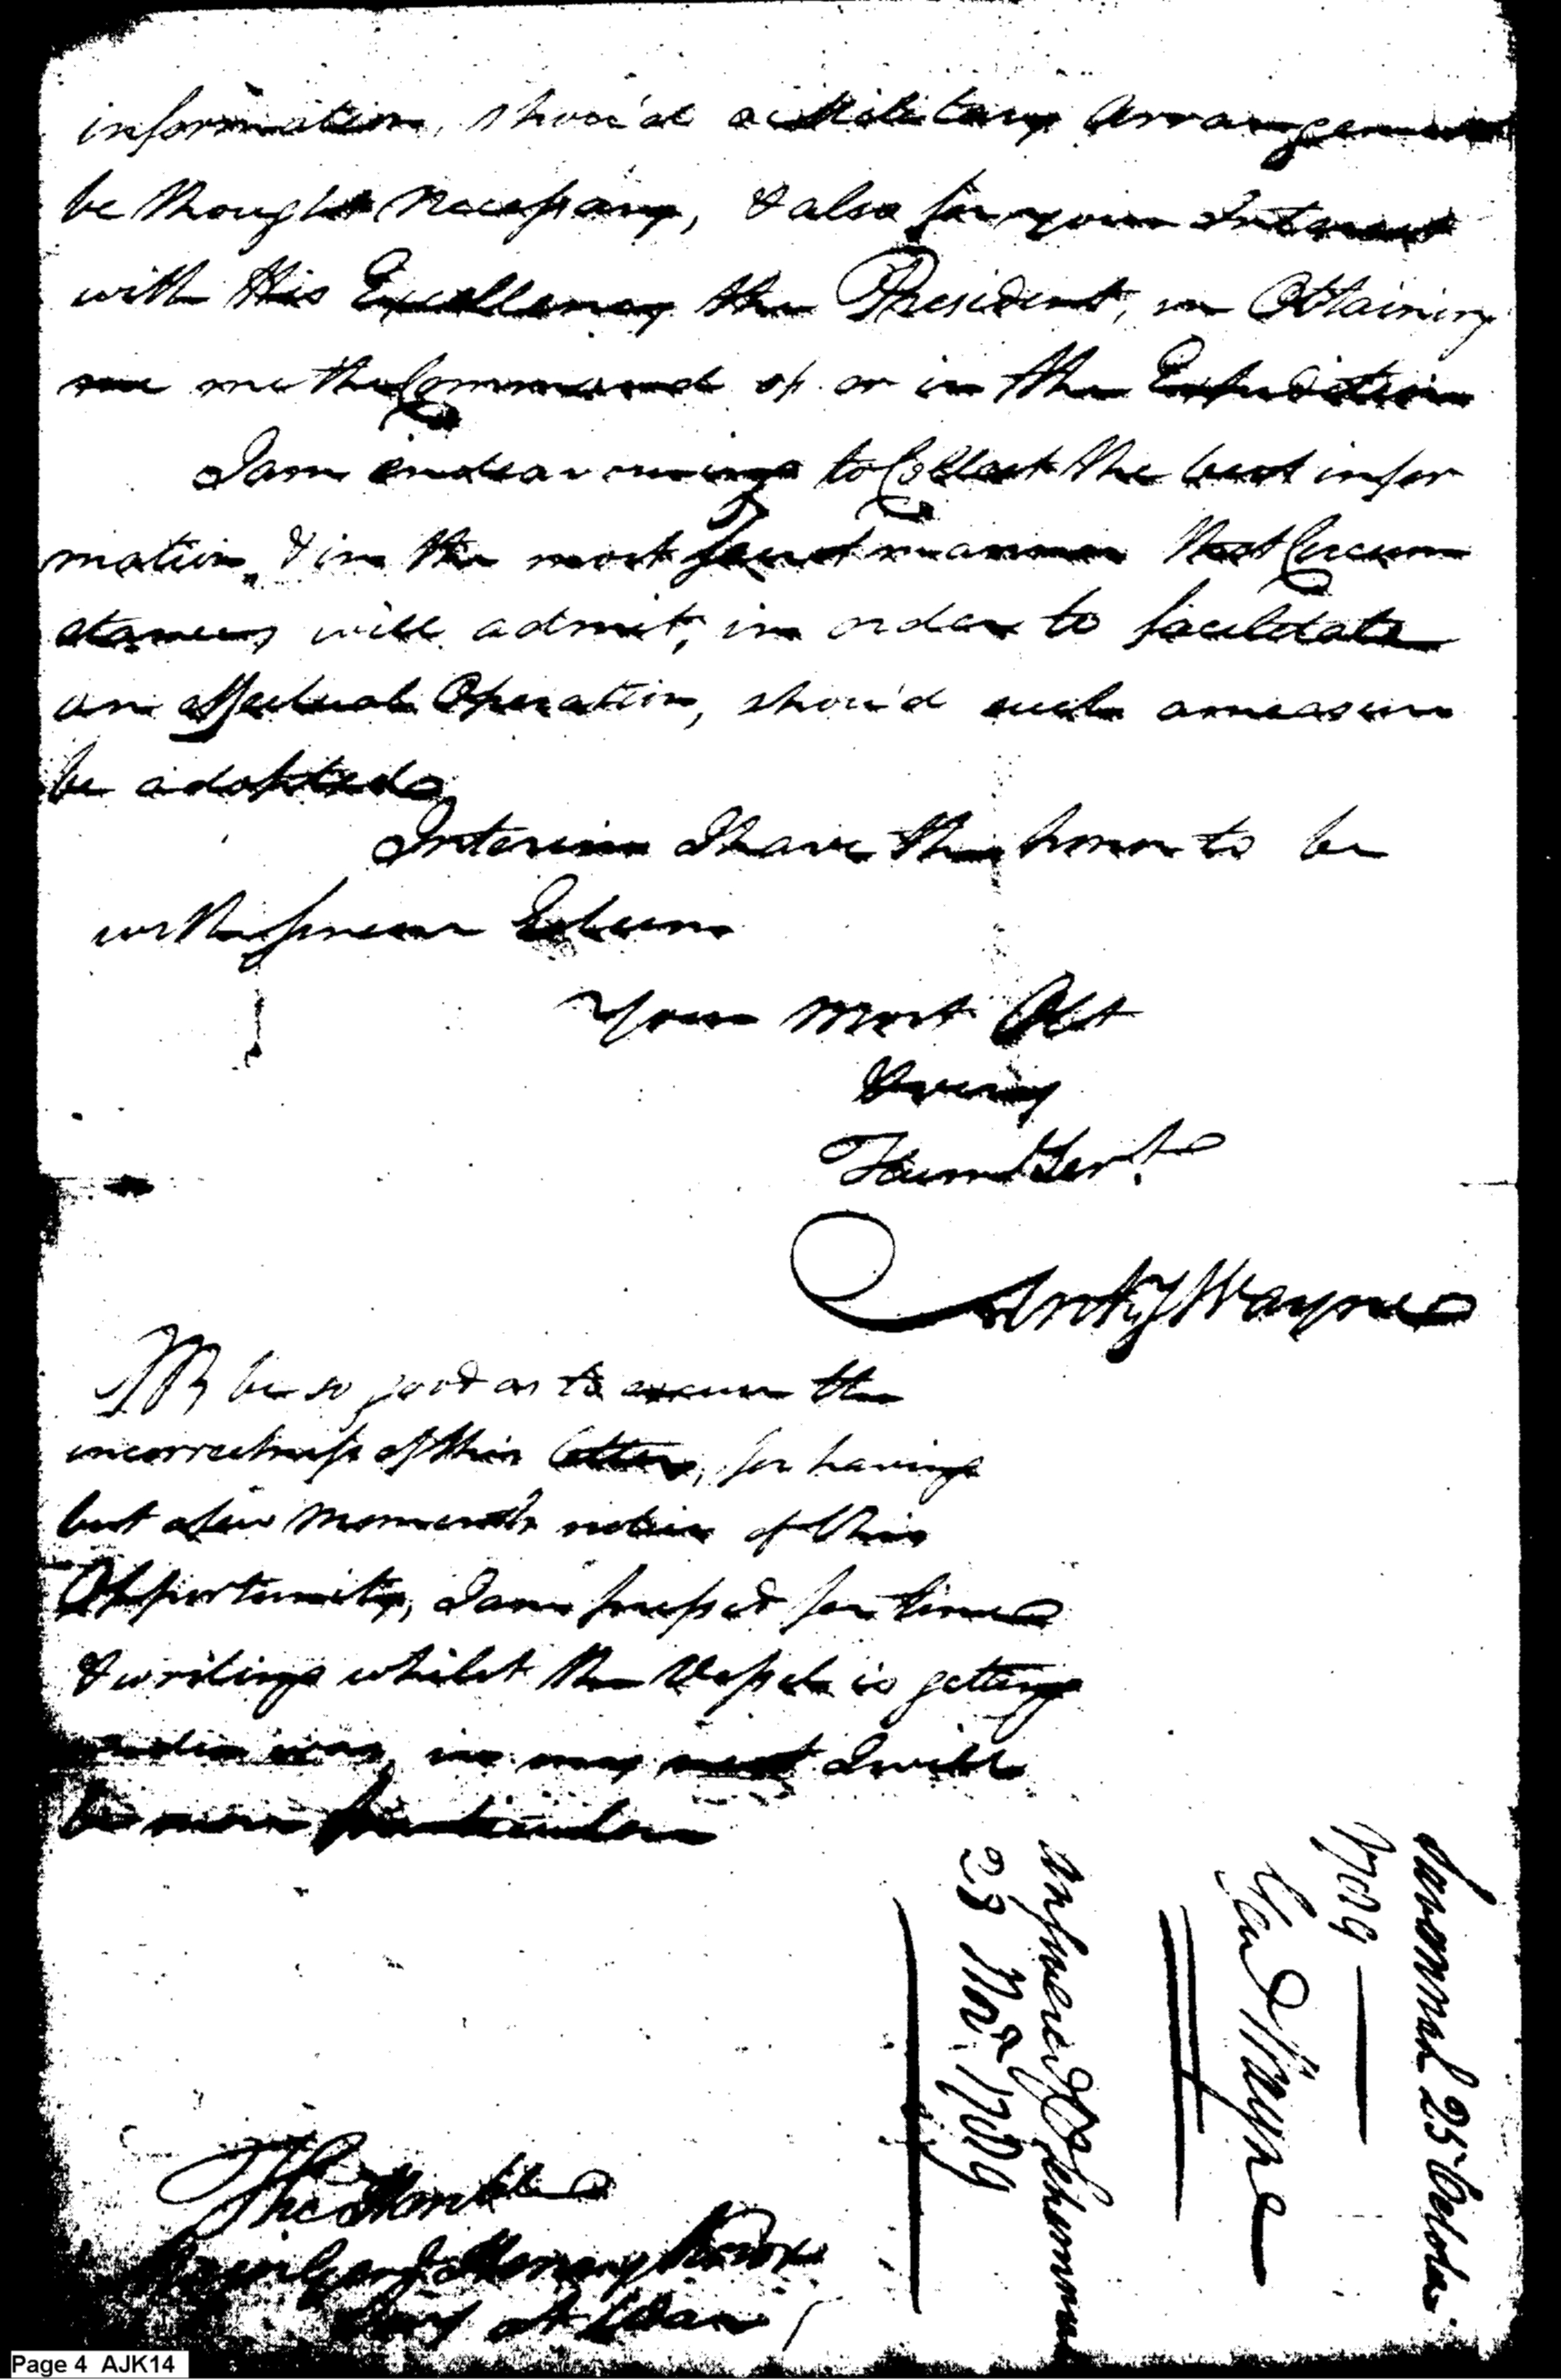 information, shou'd a Military Arrangement
be thought necessary, & also for your Interest
with His Excellency the President, in Obtaining
me the Command of or in the Expedition
I am endeavouring to Collect the best infor
mation, & in the most secret manner that Circum
stances will admit, in order to facilitate
an effectual Operation, shou'd such a measure
be adopted
Interim I have the honor to be
with sincere Esteem
Your most Obt
& very
Hum Sert
Anty Wayne
NB, be so good as to excuse the
incorrectness of this letter, for having
but a few moments notice of this
Opportunity, I am press'd for time
& writing whilst the Vessel is getting
under way, in my next I will
be more particular
The Honble
Major Genl Henry Knox
Secy at War
Savannah 25 October
1789
Genl Wayne
Answered
23 Novr 1789
Page 4 AJK14